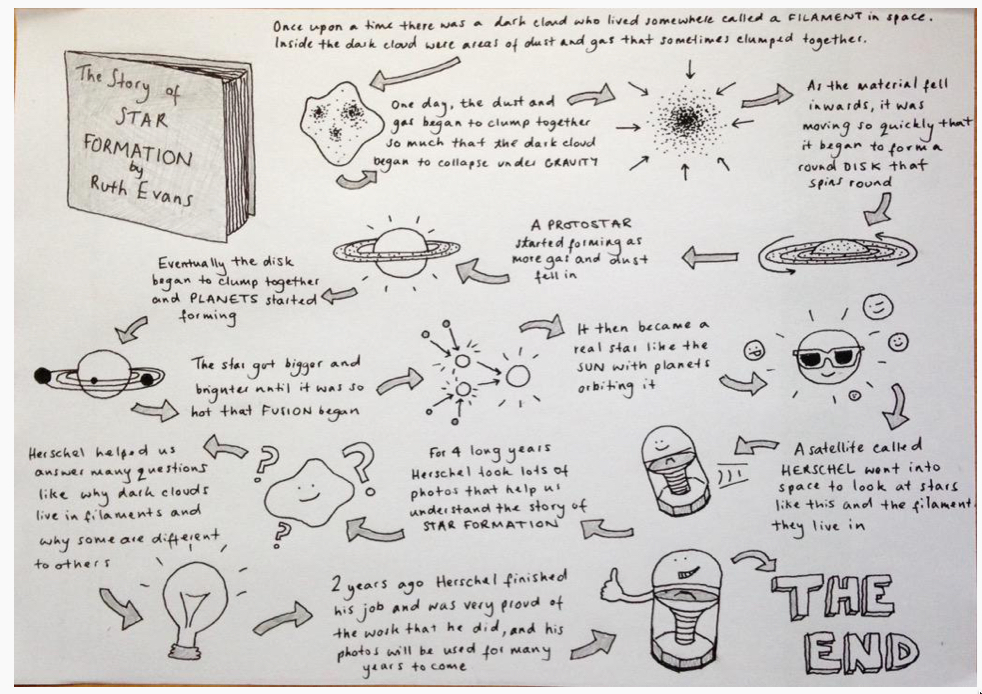 Once upon a time there was a dark cloud who lived somewhere called a FILAMENT in space.
Inside the dark cloud were areas of dust and gas that sometimes clumped together.
The Story of
STAR
FORMATION
by
Ruth Evans
One day, the dust and
gas began to clump together
so much that the dark cloud
began to collapse under GRAVITY
As the material fell
inwards, it was
moving so quickly that
it began to form a
round DISK that
spins round
A PROTOSTAR
started forming as
more gas and dust
fell in
Eventually the disk
began to clump together
and PLANETS started
forming
The star got bigger and
brighter until it was so
hot that FUSION began
It then became a
real star like the
SUN with planets
orbiting it
A satellite called
HERSCHEL went into
space to look at stars
like this and the filament
they live in
For 4 long years
Herschel took lots of
photos that help us
understand the story of
STAR FORMATION
? ? ?
Herschel helped us
answer many questions
like why dark clouds
live in filaments and
why some are different
to others
2 years ago Herschel finished
his job and was very proud of
the work that he did, and his
photos will be used for many
years to come
THE
END